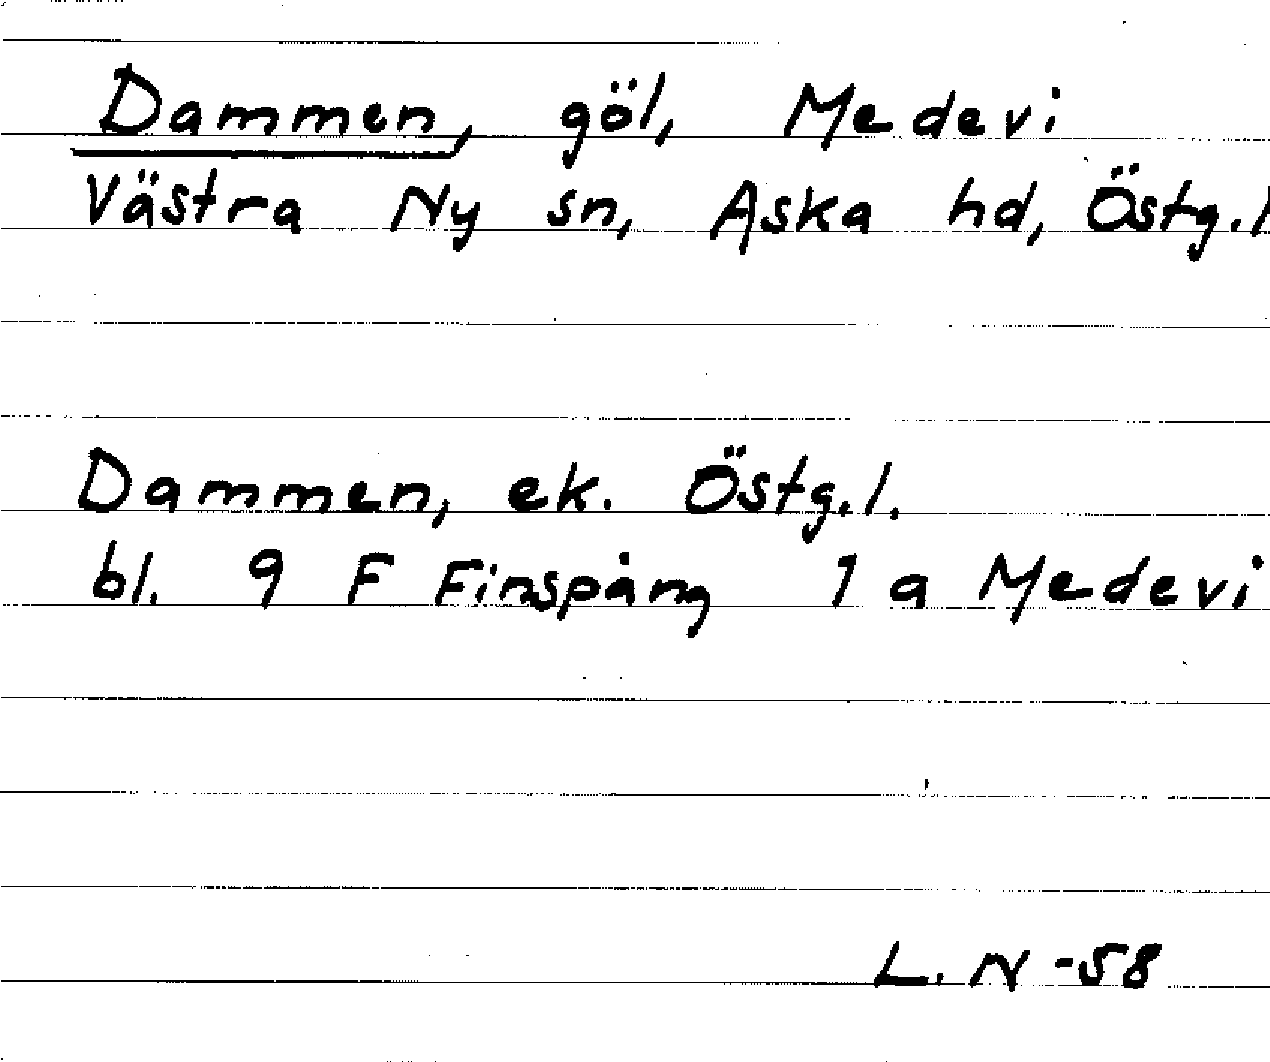 Dammen, göl, Medevi
Västra Ny sn, Aska hd, Östg.l
Dammen, ek. Östg.l.
bl. 9 F Finspång 1 a Medevi
L. N -58